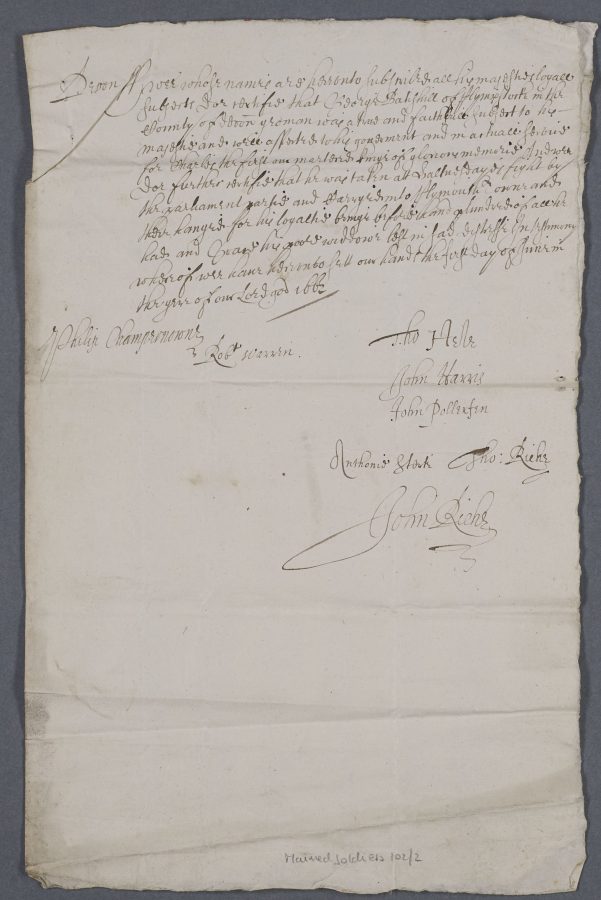 Devon ss wee whose names are hereunto subscribed all his majesties loyall
subjects Doe certifie that George Batshill of Plympstock in the
County of Devon yeoman was a true and faithfull subject to his
majestie and well affected to his goverment and in actuall service
for Charles the first our martered kinge of glorious memorie And wee
doe further certifie that he was taken att Sattterdayes fight by
the parliament partie and carryed into Plymouth towne and
there hanged for his loyaltie being before hand plundred of all he
had and his poore widdowe left in sad distresse In testimony
whereof wee have hereunto sett our hands the first day of June in
the yere of our Lord god 1663
Philip Champernowne
Tho Hele
Robt Warren.
John Harris
John Pollexfen
Anthonie Tho: Riche
John Riche
Maimed Soldiers 102/2